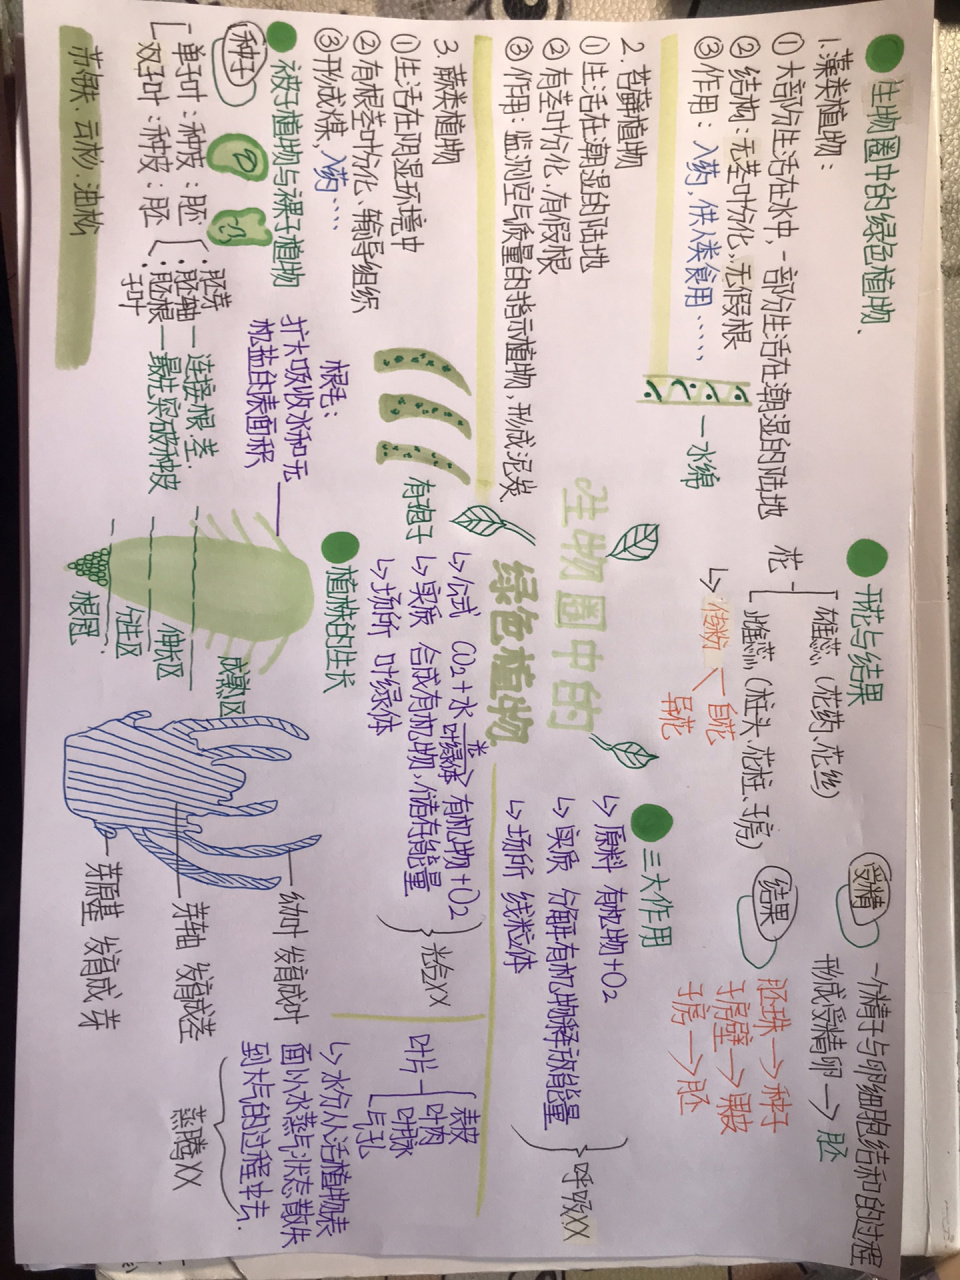 生物圈中的绿色植物、
1.藻类植物：
①大部分生活在水中，一部分生活在潮湿的陆地
②结构：无茎叶分化，无假根
③作用：入药，供人类食用……
—水绵
2.苔藓植物
①生活在潮湿的陆地
②有茎叶分化、有假根
③作用：监测空气质量的指示植物，形成泥炭
3.蕨类植物
①生活在阴湿环境中
②有根茎叶分化、输导组织
③形成煤，入药……
有孢子
被子植物与裸子植物
种子
单子叶：种皮：胚
双子叶：种皮：胚
胚芽
胚轴—连接根、茎.
胚根—最先突破种皮
子叶
苏铁、云杉、油松
生物圈中的
绿色植物
开花与结果
花
雄蕊（花药、花丝）
雌蕊（柱头、花柱、子房）
↳传粉
自花
异花
受精
一个精子与卵细胞结和的过程
形成受精卵→胚
结果
胚珠→种子
子房壁→果皮
子房→胚
三大作用
↳原料 有机物+O2
↳实质 分解有机物释放能量
↳场所 线粒体
呼吸XX
↳公式 CO2+水 光 叶绿体 有机物+O2
↳实质 合成有机物、储存能量
↳场所 叶绿体
光合XX
叶片
表皮
叶肉
叶脉
气孔
↳水分从活植物表
面以水蒸气状态散失
到大气的过程中去.
蒸腾XX
植株的生长
根毛：
扩大吸收水和无
机盐的表面积
成熟区
伸长区
分生区
根冠
幼叶 发育成叶
芽轴 发育成茎
芽原基 发育成芽